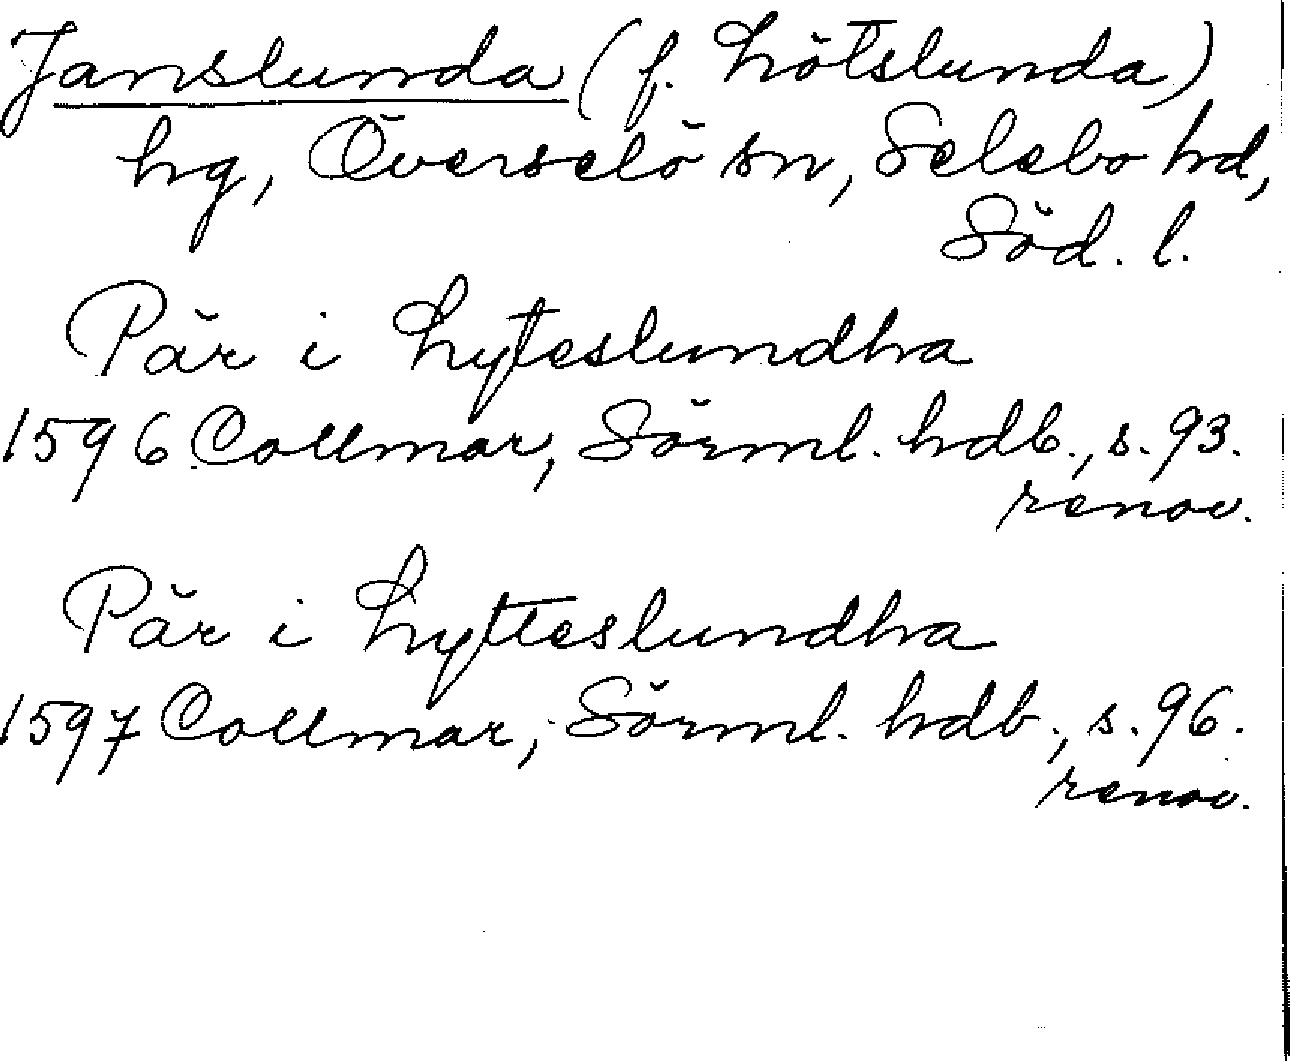 Janslunda (f. Lötslunda)
hg, Överselö sn, Selebo hd,
Söd. l.
Pär i Lyteslundha
1596 Collmar, Sörml. hdb., s. 93.
renov.
Pär i Lytteslundha
1597 Collmar, Sörml. hdb., s. 96.
renov.